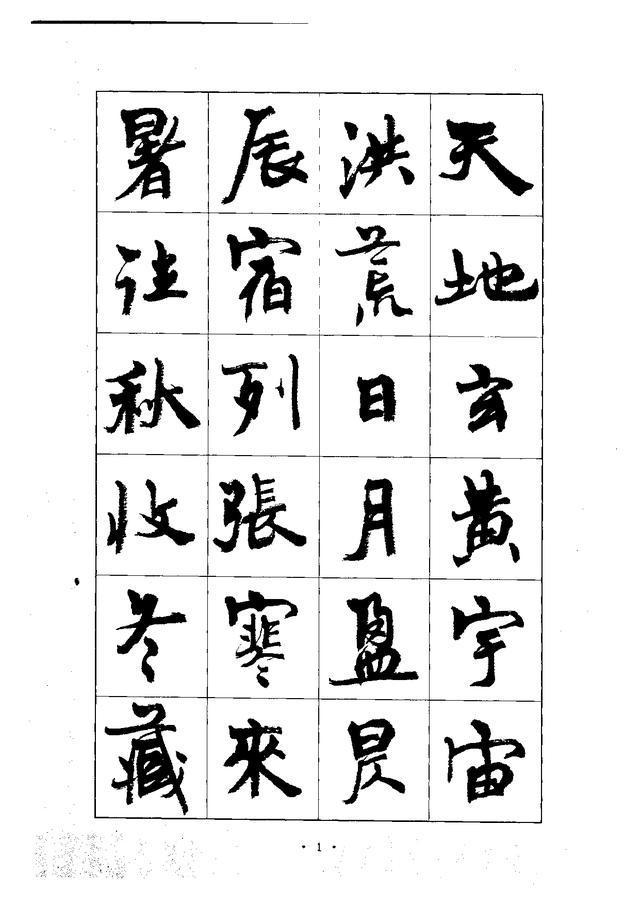 天地玄黄宇宙
洪荒日月盈昃
辰宿列張寒來
暑往秋收冬藏
· 1 ·